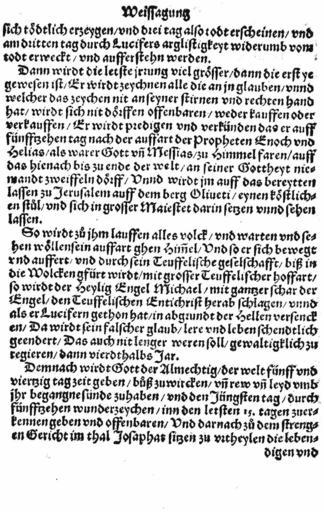 Weissagung
sich tödtlich erzeygen/vnd drei tag also todt erscheinen/vnd
am dritten tag durch Lucifers arglistigkeyt widerumb vom
todt erweckt/vnd aufferstehn werden.
Dann wirdt die letste jrung viel grösser/dann die erst ye
gewesen ist/Er wirdt zeychnen alle die an jn glauben/vnnd
welcher das zeychen nit an seyner stirnen vnd rechten hand
hat/wirdt sich nit dörffen offenbaren/weder kauffen oder
verkauffen/Er wirdt predigen vnd verkünden das er auff
fünffzehen tag nach der auffart der Propheten Enoch vnd
Helias/als warer Gott vñ Messias/zu Himmel faren/auff
das hienach bis zu ende der welt/an seiner Gottheyt nie-
mandt zweiffeln dörff/Vnnd wirdt jm auff das bereytten
lassen zu Jerusalem auff dem berg Oliueti/eynen köstlich-
en stůl/vnd sich in grosser Maiestet darin setzen vnnd sehen
lassen.
So wirdt zů jhm lauffen alles volck/vnd warten vnd se-
hen wöllen sein auffart ghen Hiñel/Vnd so er sich bewegt
vnd auffert/vnd durch sein Teuffelische geselschafft/biß in
die Wolcken gfürt wirdt/mit grosser Teuffelischer hoffart/
so wirdt der Heylig Engel Michael/mit gantzer schar der
Engel/den Teuffelischen Entichrist herab schlagen/vnnd
als er Lucifern gethon hat/in abgrundt der Hellen versenck
en/Da wirdt sein falscher glaub/lere vnd leben schendtlich
geendert/Das auch nit lenger weren soll/gewaltigklich zu
regieren/dann vierdthalbs Jar.
Demnach wirdt Gott der Almechtig/der welt fünff vnd
viertzig tag zeit geben/bůß zu wircken/vñ rew vñ leyd vmb
jhr begangne sünde zuhaben/vnd den Jüngsten tag/durch
fünffzehen wunderzeychen/inn den letsten 15. tagen zuer-
kennen geben vnd offenbaren/Vnd darnach zů dem streng-
en Gericht im thal Josaphat sitzen zu vrtheylen die leben-
digen vnd